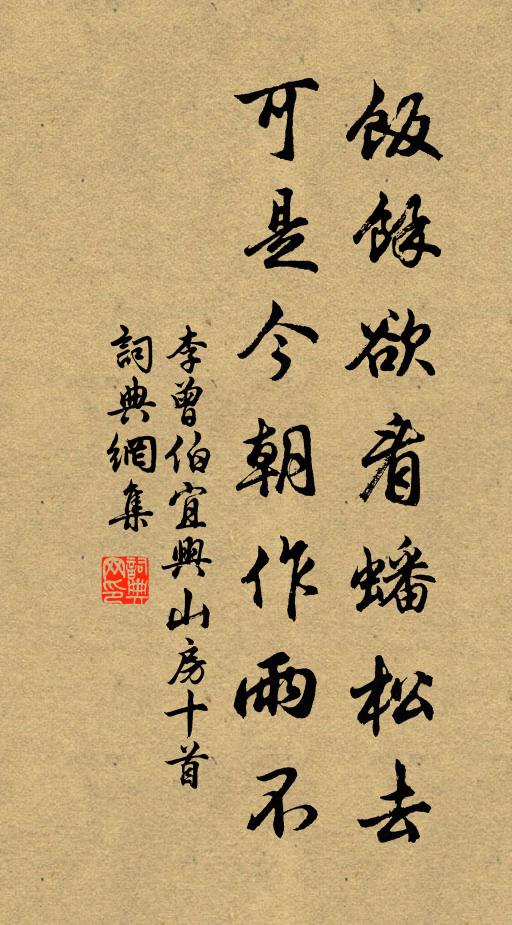 飯餘欲看蟠松去
可是今朝作雨不
李曾伯宜興山房十首
詞典網集
詞典网印